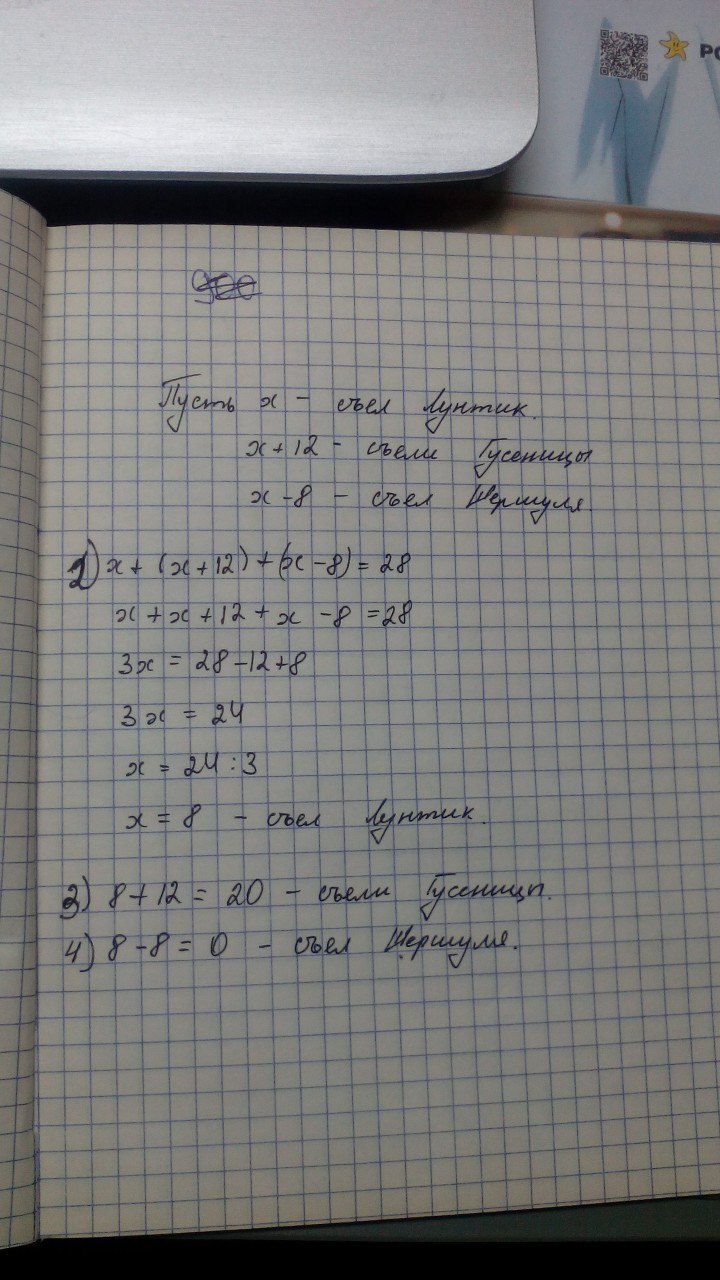 РО
900
Пусть х - съел Лунтик.
х + 12 - съели Гусеницы
х - 8 - съел Шершуля.
1) х + (х + 12) + (х - 8) = 28
х + х + 12 + х - 8 = 28
3х = 28 - 12 + 8
3х = 24
х = 24 : 3
х = 8 - съел Лунтик.
3) 8 + 12 = 20 - съели Гусеницы.
4) 8 - 8 = 0 - съел Шершуля.